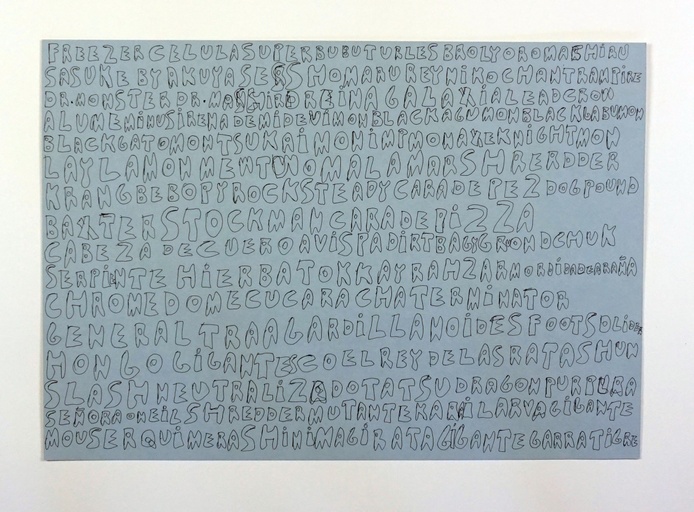 FREEZERCELULASUPERBUBUTURLESBROLYOROMASHIRU
SASUKEBYAKUYASERSSHOMARUREYNIKOCHANTRAMPIRE
DR.MONSTERDR. REINAGALAXIALEADCROW
ALUMEMINUSIRENADEMIDEVIMONBLACKAGUMONBLACKLABUMON
BLACKGATOMONTSUKAIMONIMPMONAXEKNIGHTMON
LAYLAMONMEWTUNOMALAMARSHRERDDER
KRANGBEBOPYROCKSTEADYCARADEPEZDOGPOUND
BAXTERSTOCKMANCARADEPIZZA
CABEZADECUEROAVISPADIRTBAGYGRONDCHUK
SERPINTEHIERBATOKKAYRAHZARMORDIDADEARAÑA
CHROMEDOMECUCARACHATERMINATOR
GENERALTRAAGARDILLANOIDESFOOTSOLIDER
HONGOGIGANTESCOELREYDELASRATASHUN
SLASHNEUTRALIZADOTATSUDRAGONPURPURA
SEÑORAONEILSHREDDERMUTANTEKARILARVAGIGANTE
MOUSERQUIMERASHINIMAGIRATAGIGANTEGARRATIGRE